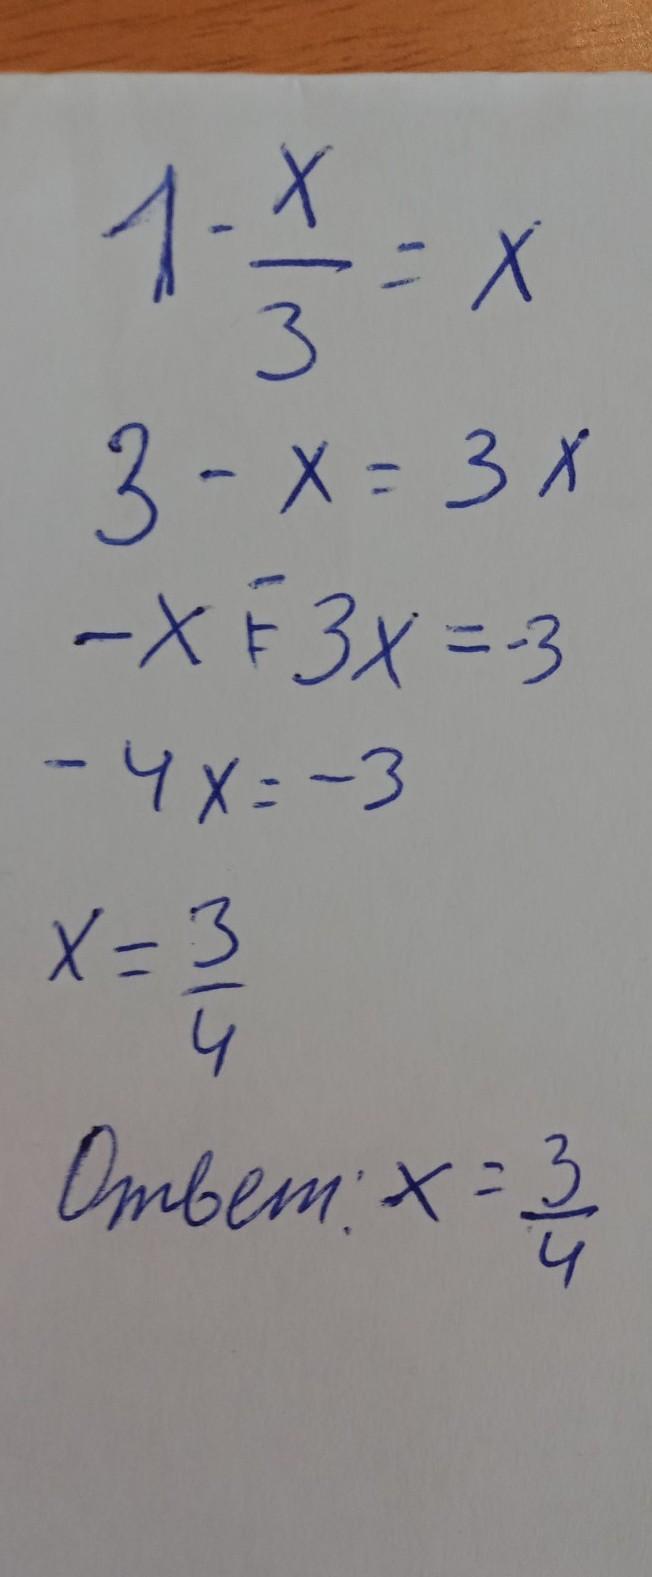 1 - x/3 = x
3 - x = 3x
-x - 3x = -3
-4x = -3
x = 3/4
Ответ: x = 3/4